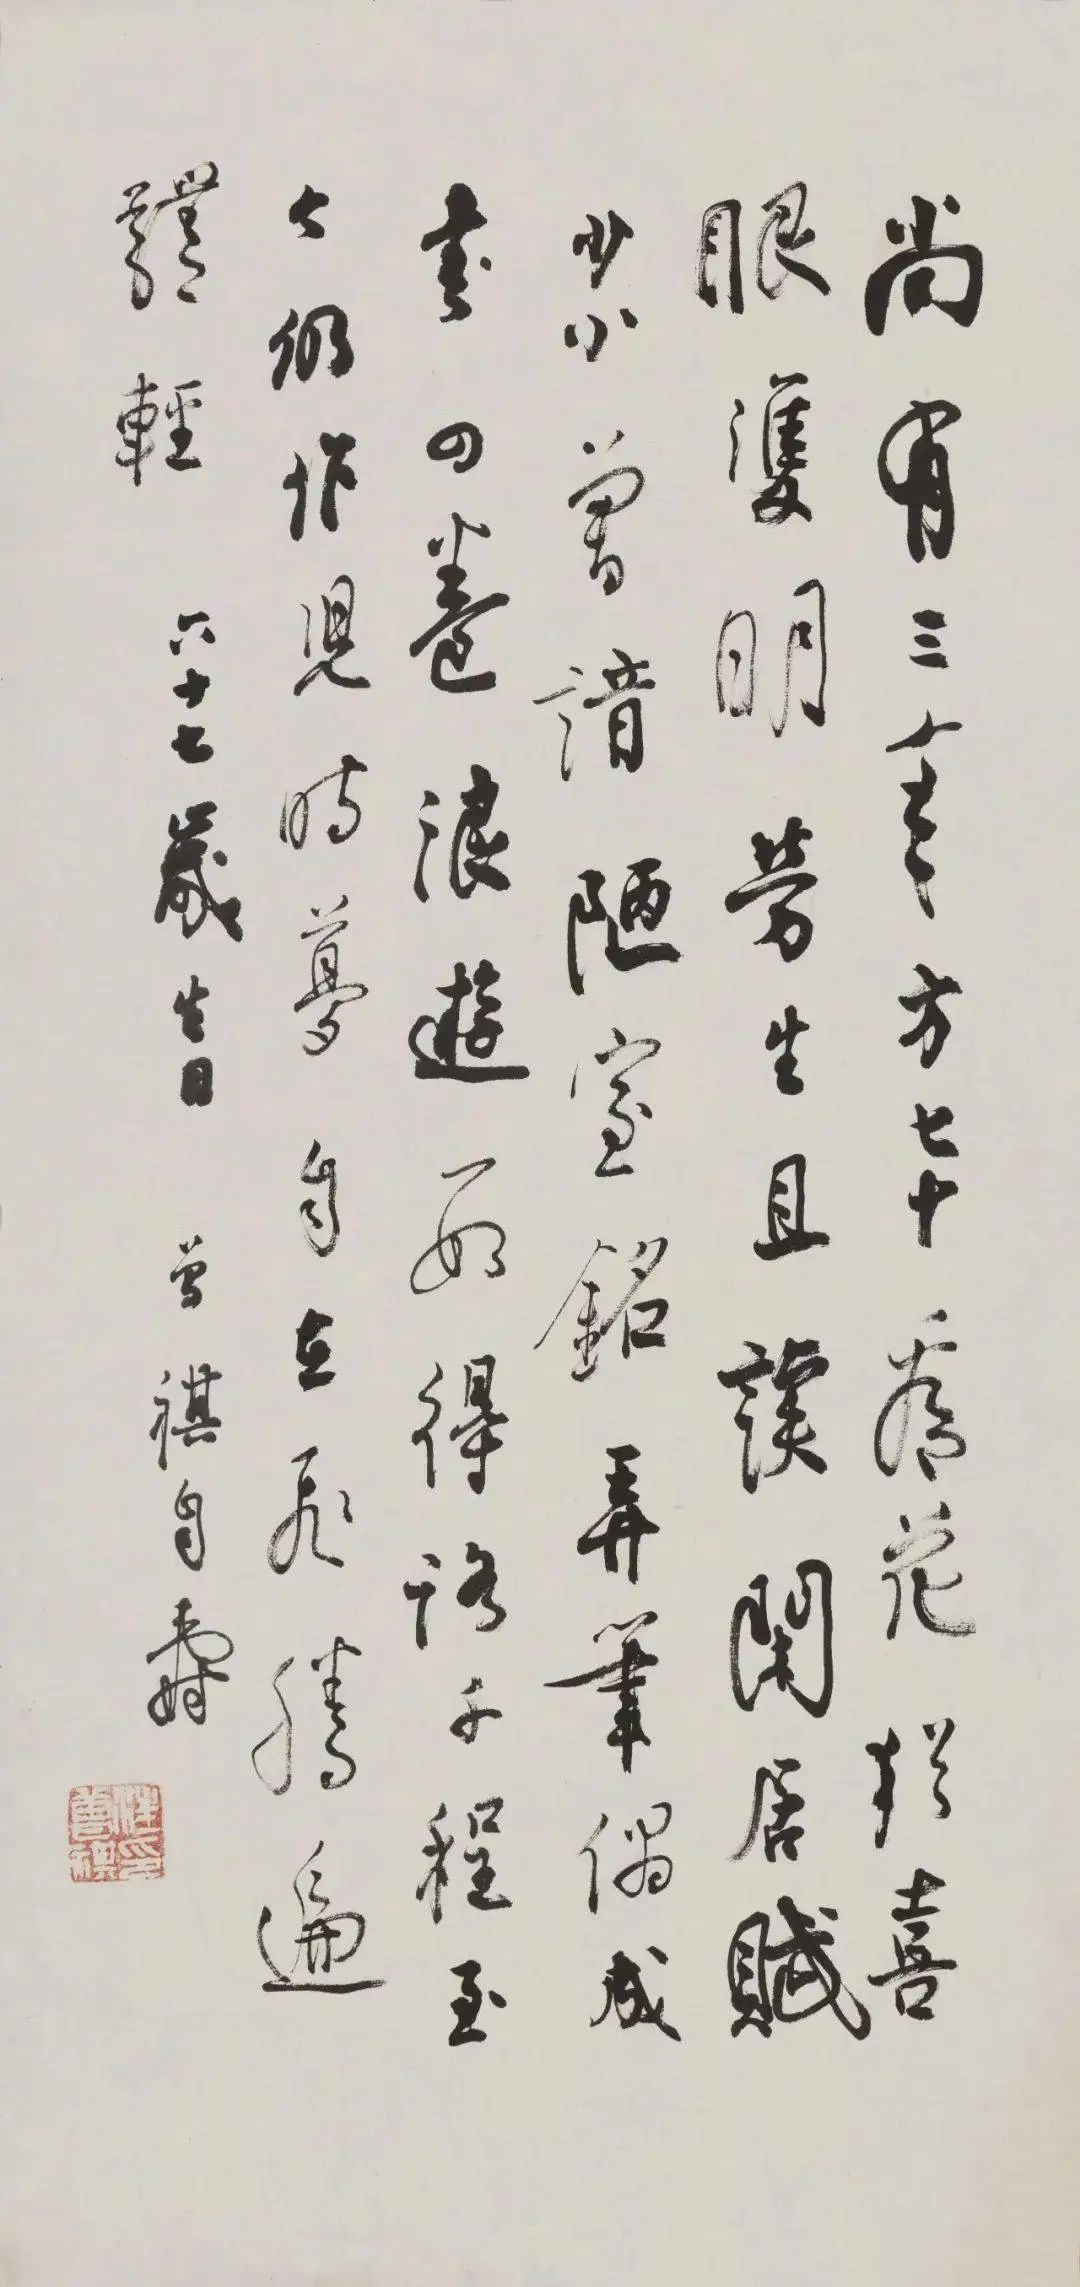 尚有三年方七十看花猶喜
眼雙明勞生且讀閑居賦
少小曾諳陋室銘弄筆偶成
書四卷浪遊得路千程至
今仍作兒時夢自在飛騰遍
體輕
六十七歲生日 曾祺自壽
汪曾祺印